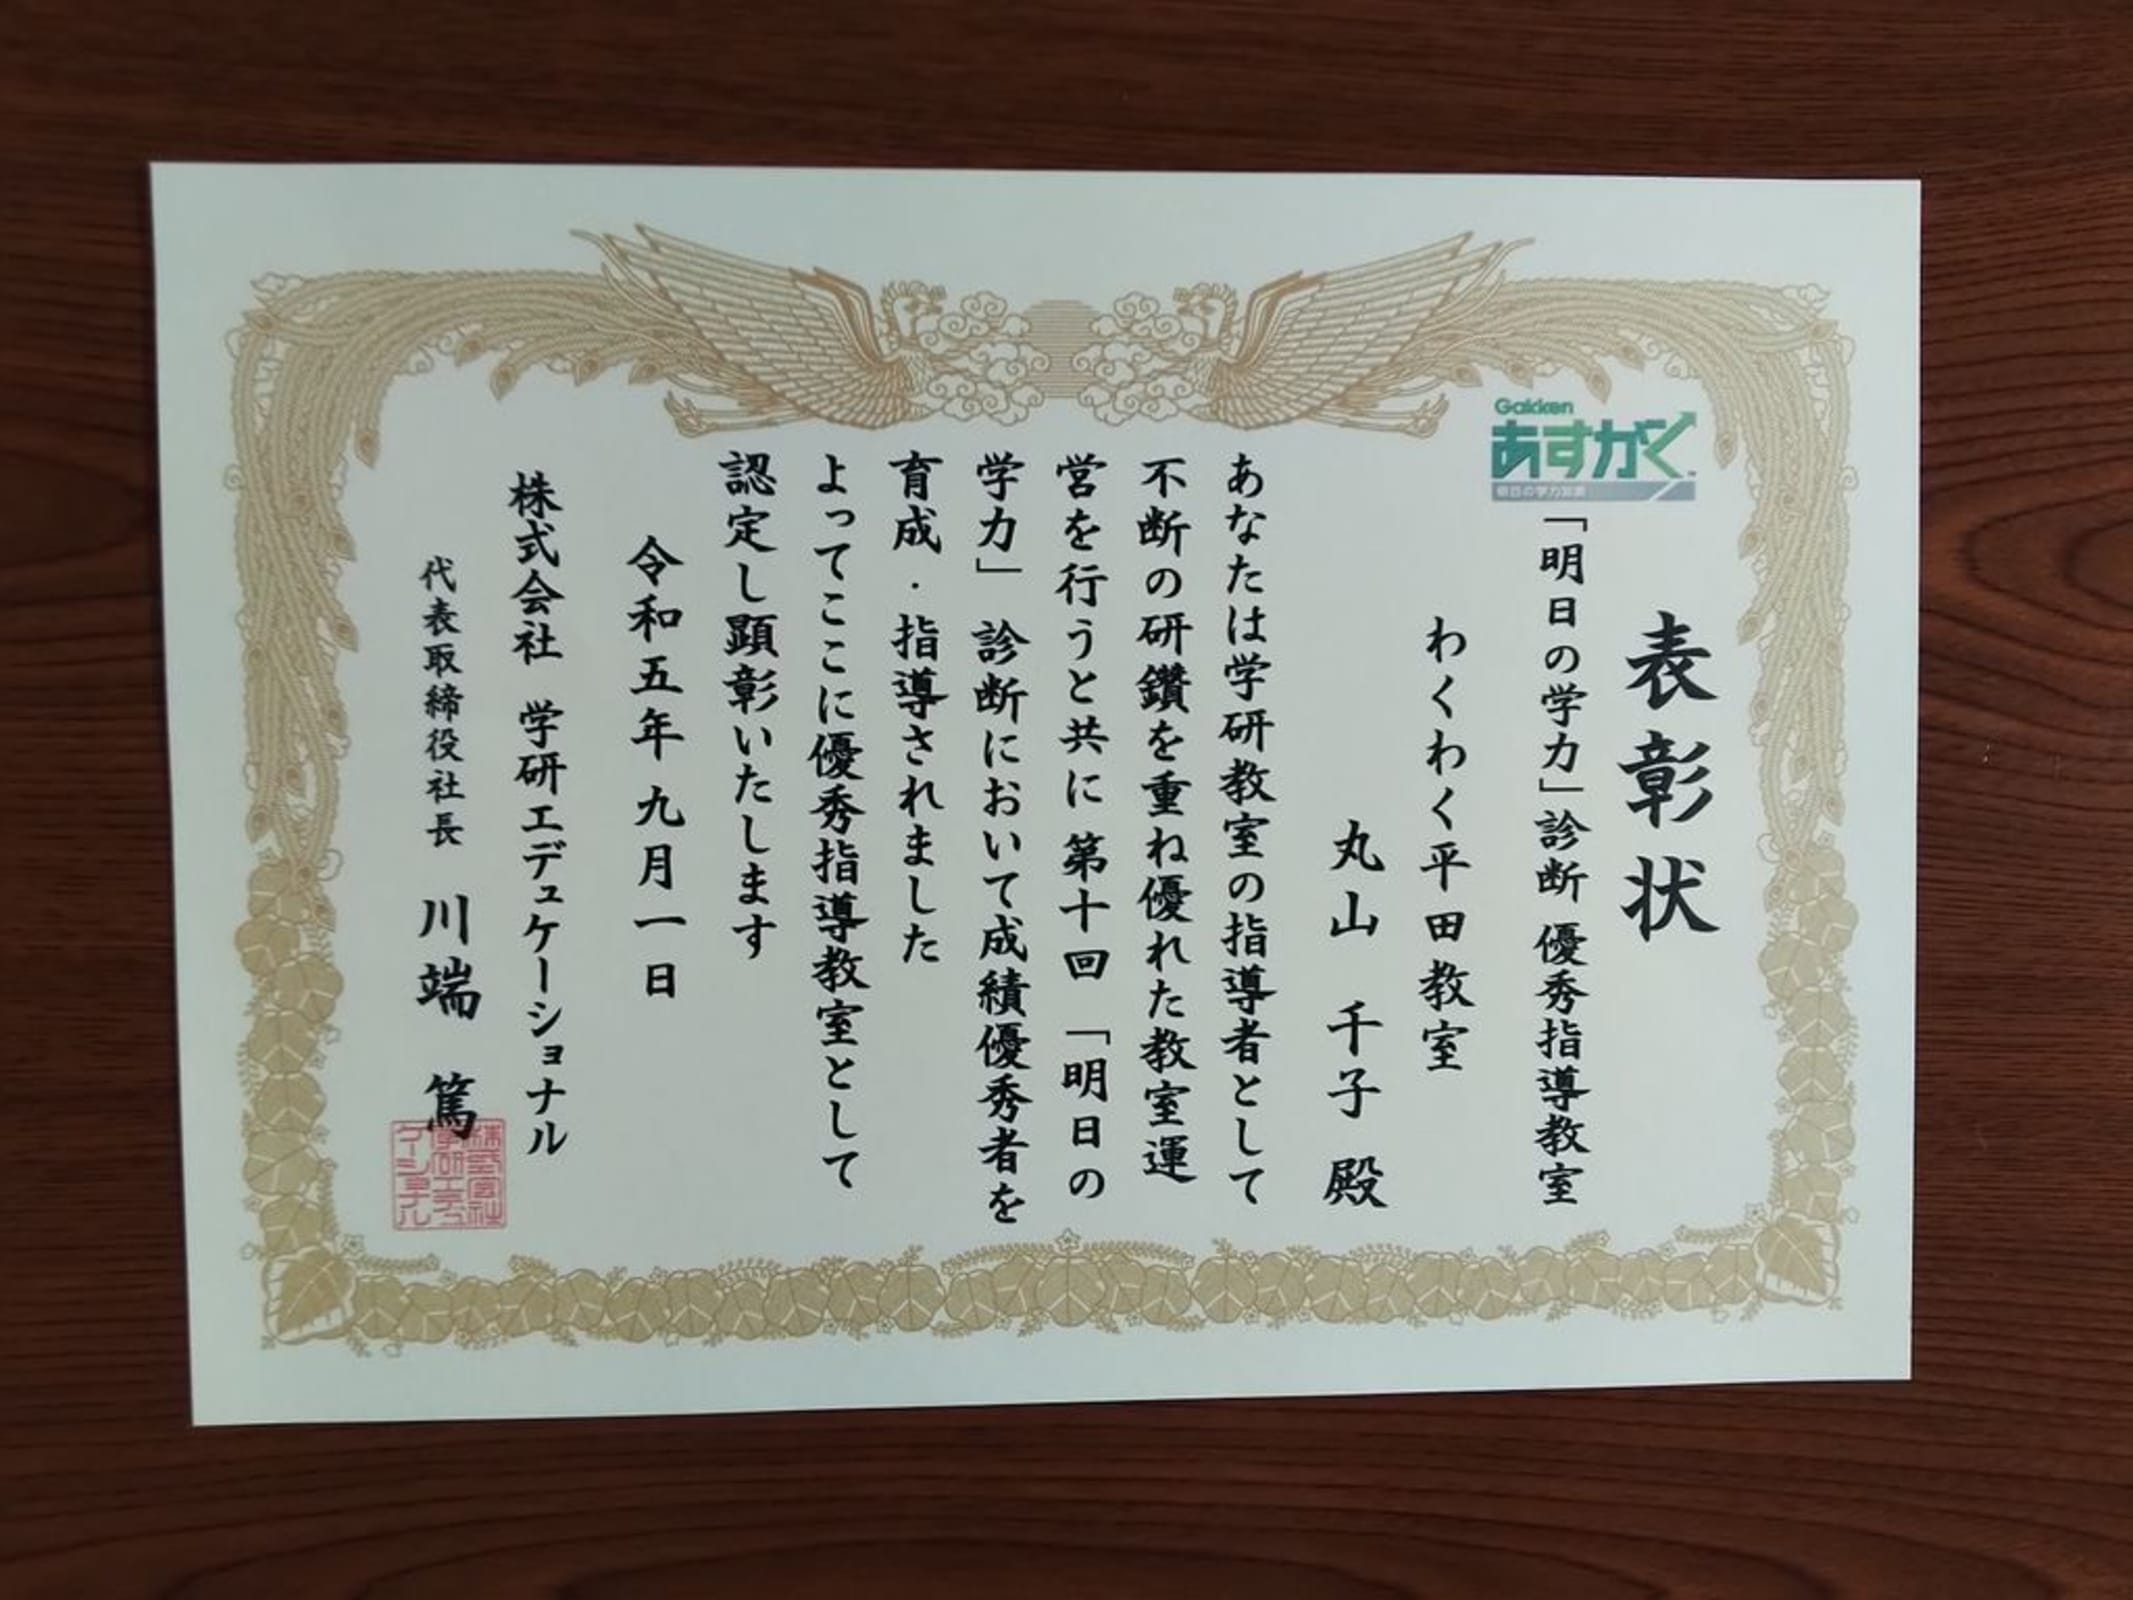 表彰状
Gakken
あすがく
明日の学力診断
「明日の学力」診断 優秀指導教室
わくわく平田教室
丸山 千子 殿
あなたは学研教室の指導者として
不断の研鑽を重ね優れた教室運
営を行うと共に 第十回 「明日の
学力」 診断において成績優秀者を
育成・指導されました
よってここに優秀指導教室として
認定し顕彰いたします
令和五年九月一日
株式会社 学研エデュケーショナル
代表取締役社長 川端 篤
株式会社
学研エデュ
ケーショナル